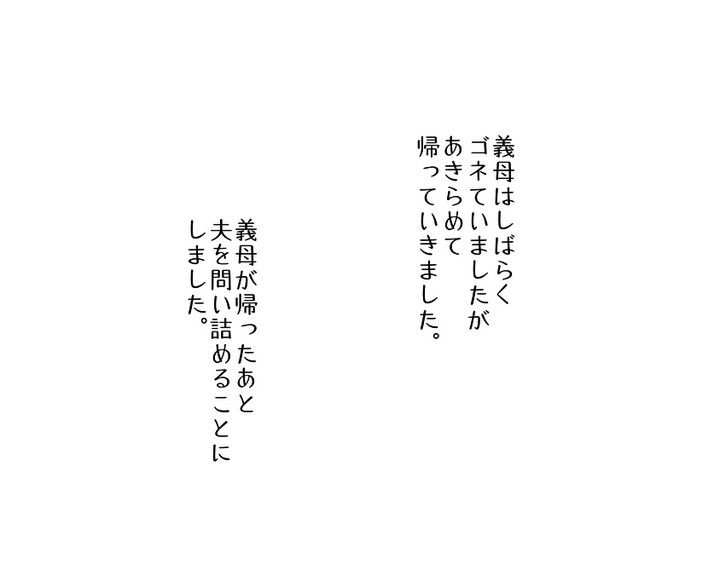 義母はしばらく
ゴネていましたが
あきらめて
帰っていきました。
義母が帰ったあと
夫を問い詰めることに
しました。